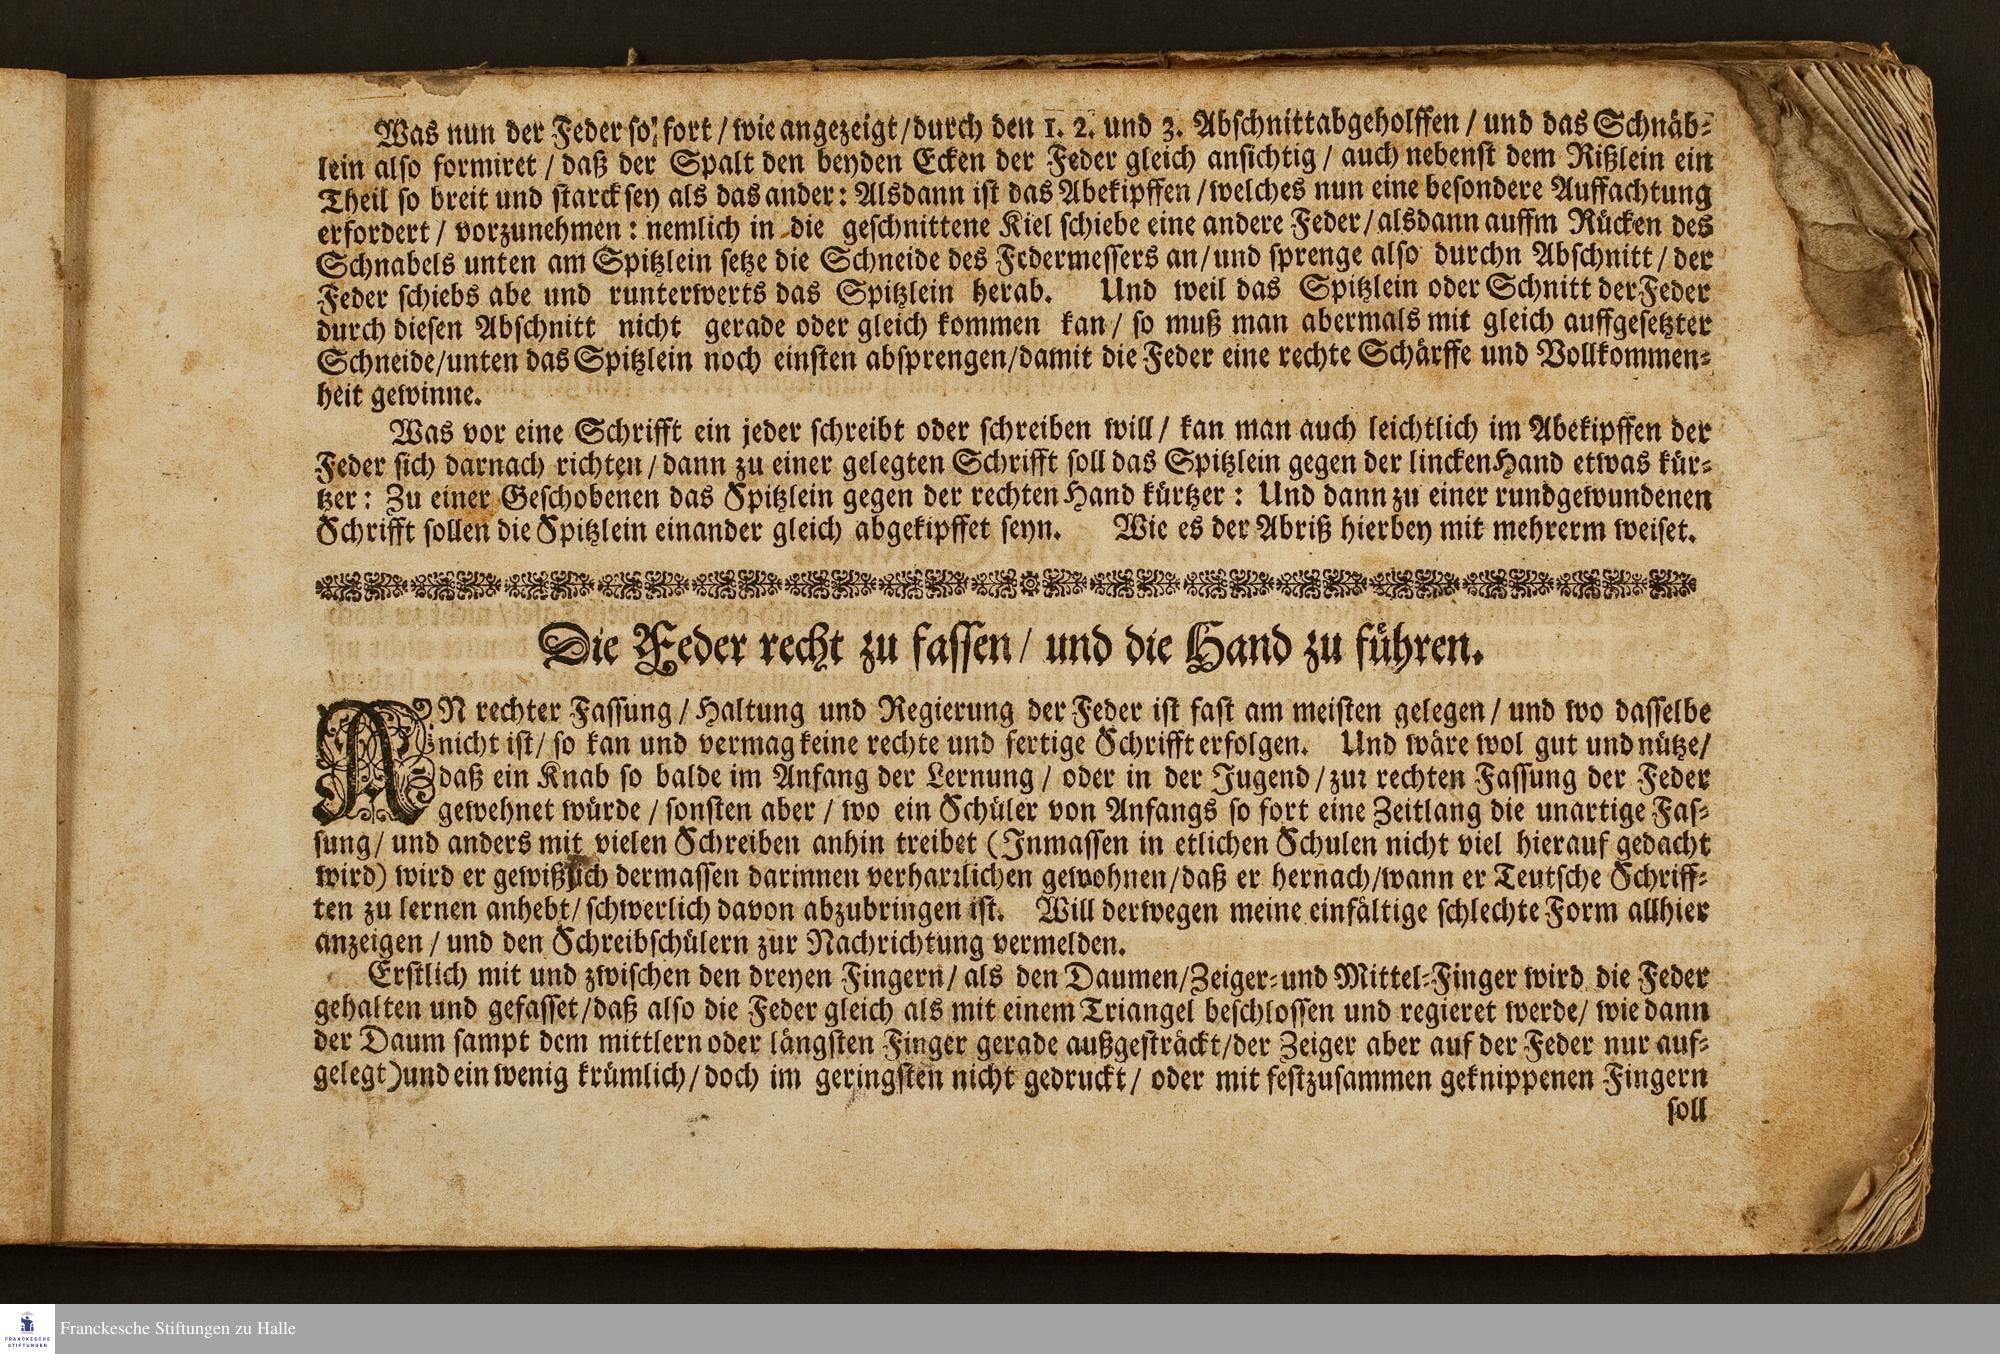 Was nun der Feder so fort / wie angezeigt / durch den 1. 2. und 3. Abschnitt abgeholffen / und das Schnäb-
lein also formiret / daß der Spalt den beyden Ecken der Feder gleich ansichtig / auch nebenst dem Rißlein ein
Theil so breit und starck sey als das ander: Alsdann ist das Abekipffen / welches nun eine besondere Auffachtung
erfordert / vorzunehmen: nemlich in die geschnittene Kiel schiebe eine andere Feder / alsdann auffm Rücken des
Schnabels unten am Spitzlein setze die Schneide des Federmessers an / und sprenge also durchn Abschnitt / der
Feder schiebs abe und runterwerts das Spitzlein herab. Und weil das Spitzlein oder Schnitt der Feder
durch diesen Abschnitt nicht gerade oder gleich kommen kan / so muß man abermals mit gleich auffgesetzter
Schneide / unten das Spitzlein noch einsten absprengen / damit die Feder eine rechte Schärffe und Vollkommen-
heit gewinne.
Was vor eine Schrifft ein jeder schreibt oder schreiben will / kan man auch leichtlich im Abekipffen der
Feder sich darnach richten / dann zu einer gelegten Schrifft soll das Spitzlein gegen der lincken Hand etwas kür-
tzer: Zu einer Geschobenen das Spitzlein gegen der rechten Hand kürtzer: Und dann zu einer rundgewundenen
Schrifft sollen die Spitzlein einander gleich abgekipffet seyn. Wie es der Abriß hierbey mit mehrerm weiset.
Die Feder recht zu fassen / und die Hand zu führen.
AN rechter Fassung / Haltung und Regierung der Feder ist fast am meisten gelegen / und wo dasselbe
nicht ist / so kan und vermag keine rechte und fertige Schrifft erfolgen. Und wäre wol gut und nütze /
daß ein Knab so balde im Anfang der Lernung / oder in der Jugend / zur rechten Fassung der Feder
gewehnet würde / sonsten aber / wo ein Schüler von Anfangs so fort eine Zeitlang die unartige Fas-
sung / und anders mit vielen Schreiben anhin treibet (Inmassen in etlichen Schulen nicht viel hierauf gedacht
wird) wird er gewißlich dermassen darinnen verharrlichen gewohnen / daß er hernach / wann er Teutsche Schriff-
ten zu lernen anhebt / schwerlich davon abzubringen ist. Will derwegen meine einfältige schlechte Form allhier
anzeigen / und den Schreibschülern zur Nachrichtung vermelden.
Erstlich mit und zwischen den dreyen Fingern / als den Daumen / Zeiger- und Mittel-Finger wird die Feder
gehalten und gefasset / daß also die Feder gleich als mit einem Triangel beschlossen und regieret werde / wie dann
der Daum sampt dem mittlern oder längsten Finger gerade außgesträckt / der Zeiger aber auf der Feder nur auf-
gelegt) und ein wenig krümlich / doch im geringsten nicht gedruckt / oder mit fest zusammen geknippenen Fingern
soll
FRANCKESCHE
STIFTUNGEN
Franckesche Stiftungen zu Halle